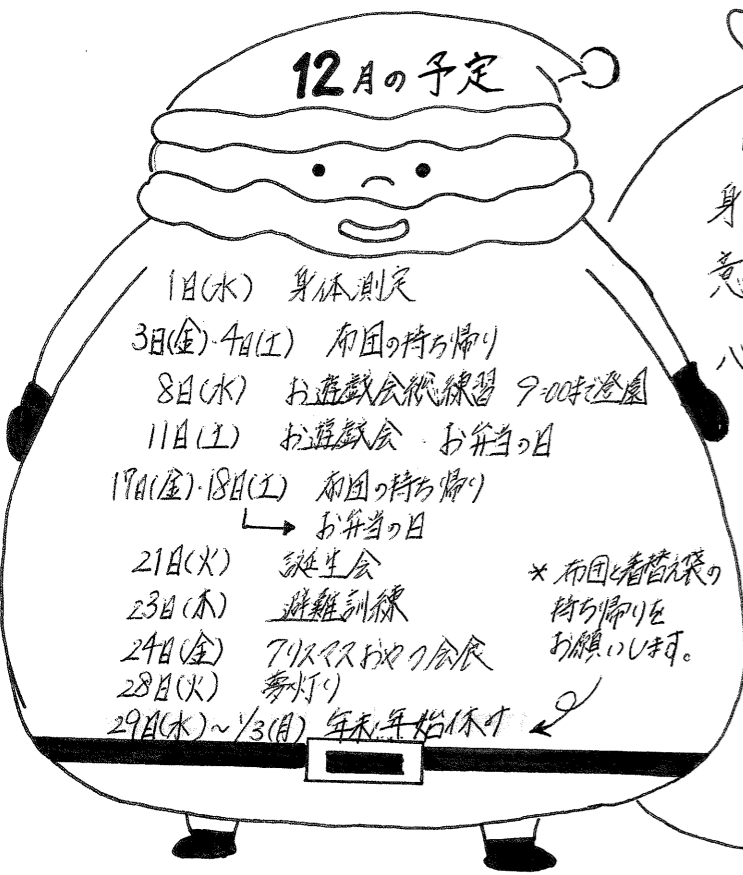 12月の予定
1日(水) 身体測定
3日(金)・4日(土) 布団の持ち帰り
8日(水) お遊戯会総練習 9:00まで登園
11日(土) お遊戯会 お弁当の日
17日(金)・18日(土) 布団の持ち帰り
お弁当の日
21日(火) 誕生会
23日(木) 避難訓練
24日(金) クリスマスおやつ会食
28日(火) 夢灯り
29日(水)~1/3(月) 年末年始休み
* 布団と着替え袋の
持ち帰りを
お願いします。
身
意